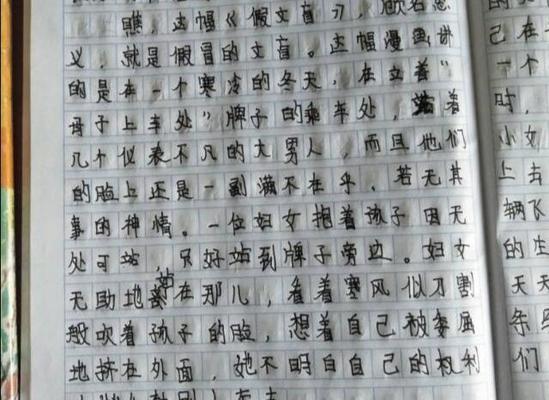 瞧，这幅《假文盲》，顾名思
义，就是假冒的文盲。这幅漫画讲
的是在一个寒冷的冬天，在立着“
母子上车处”牌子的乘车处，站着
几个仪表不凡的大男人，而且他们
的脸上还是一副满不在乎、若无其
事的神情。一位妇女抱着孩子因无
处可站，只好站到牌子旁边。妇女
无助地站在那儿，看着寒风似刀割
般吹着孩子的脸，想着自己被
地挤在外面，她不明白自己的权利
己在一
一个
时，
小女
上去
辆飞
的生
天天
条
们